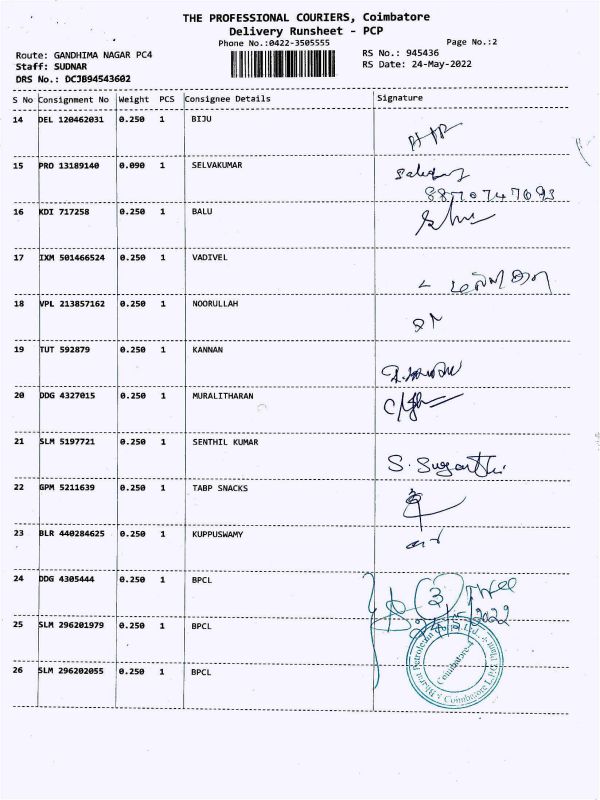 THE PROFESSIONAL COURIERS, Coimbatore
Delivery Runsheet - PCP
Phone No.:0422-3505555 Page No.:2
Route: GANDHIMA NAGAR PC4 RS No.: 945436
Staff: SUDNAR RS Date: 24-May-2022
DRS No.: DCJB94543602
S No Consignment No Weight PCS Consignee Details Signature
14 DEL 120462031 0.250 1 BIJU
15 PRO 13189140 0.090 1 SELVAKUMAR
8870747693
16 KDI 717258 0.250 1 BALU
17 IXM 501466524 0.250 1 VADIVEL
18 VPL 213857162 0.250 1 NOORULLAH
19 TUT 592879 0.250 1 KANNAN
20 DDG 4327015 0.250 1 MURALITHARAN
21 SLM 5197721 0.250 1 SENTHIL KUMAR
S. Suganthi
22 GPM 5211639 0.250 1 TABP SNACKS
23 BLR 440284625 0.250 1 KUPPUSWAMY
24 DDG 4305444 0.250 1 BPCL
3 Three
25 SLM 296201979 0.250 1 BPCL
26 SLM 296202055 0.250 1 BPCL